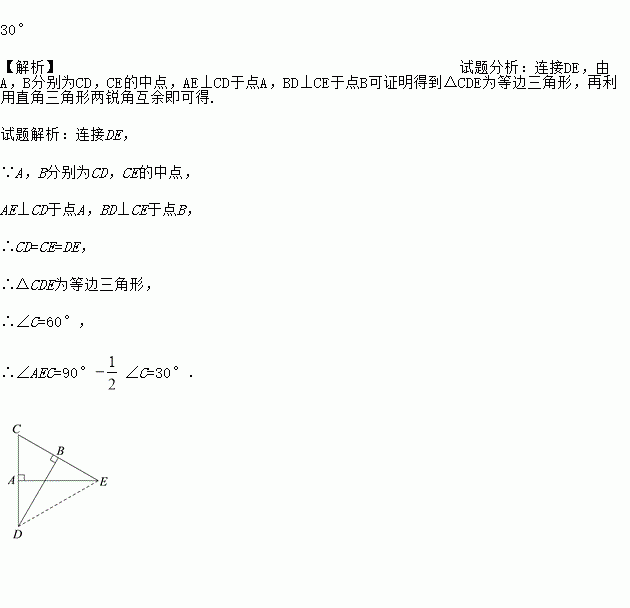 30°
【解析】 试题分析：连接DE，由
A，B分别为CD，CE的中点，AE⊥CD于点A，BD⊥CE于点B可证明得到△CDE为等边三角形，再利
用直角三角形两锐角互余即可得.
试题解析：连接DE，
∵A，B分别为CD，CE的中点，
AE⊥CD于点A，BD⊥CE于点B，
∴CD=CE=DE，
∴△CDE为等边三角形，
∴∠C=60°，
∴∠AEC=90°−1/2 ∠C=30°.
C
B
A
E
D